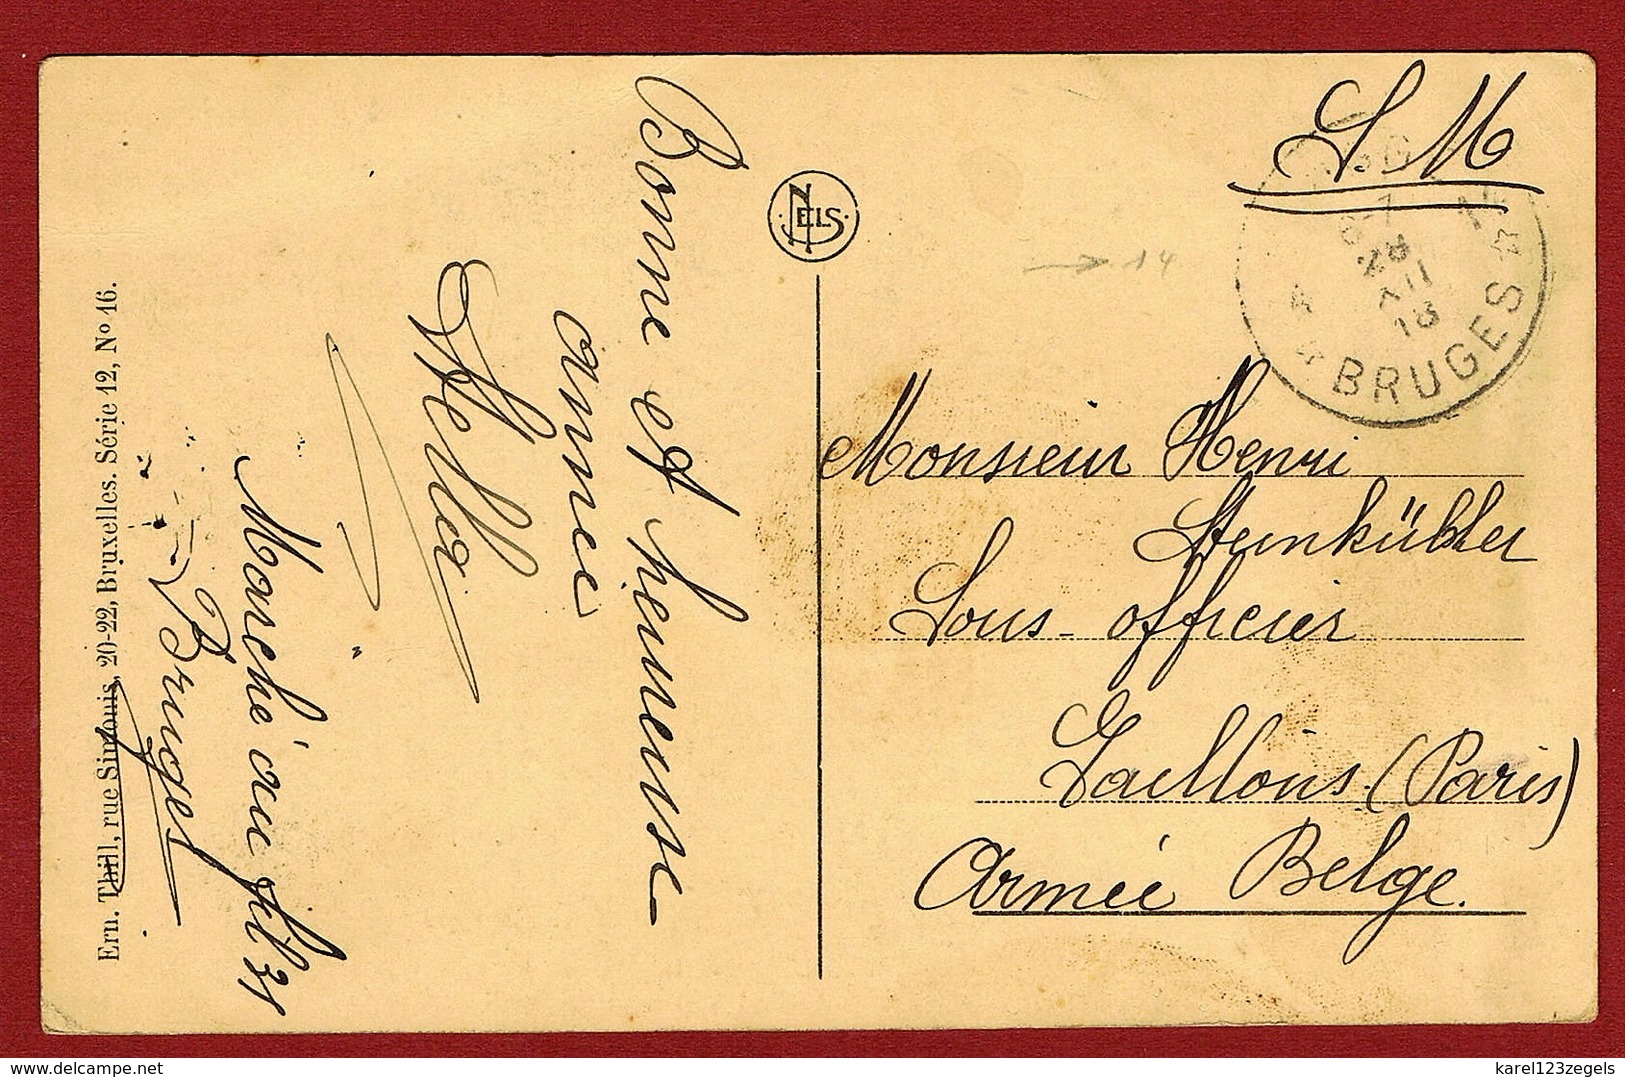 Bonne et heureuse
année
Stella
Marché au fil 31
Bruges
Ern. Thill, rue Simonis, 20-22, Bruxelles. Série 12, Nº 16.
NELS
S. M
BRUGES
28
XII
18
→ 14
Monsieur Henri
Steinkühler
Sous-officier
Gaillons (Paris)
Armée Belge.
delcampe.net
karel123zegels